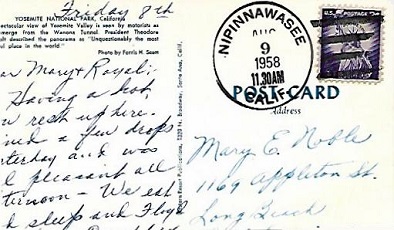 Friday 8th
YOSEMITE NATIONAL PARK, California
pectacular view of Yosemite Valley is seen by motorists as
emerge from the Wawona Tunnel. President Theodore
elt described this panorama as "Unquestionably the most
ul place in the world"
Photo by Ferris H. Scott
ar Mary & Royal:
Having a hot,
rest up here.
ed a few drops
terday and was
pleasant all
ternoon - We eat
sleep and Floyd
Western Resort Publications, Broadway, Santa Ana, Calif.
NIPINNAWASEE
AUG
9
1958
11.30AM
CALIF.
U.S. POSTAGE
POST CARD
Address
Mary E. Noble
1169 Appleton St.
Long Beach